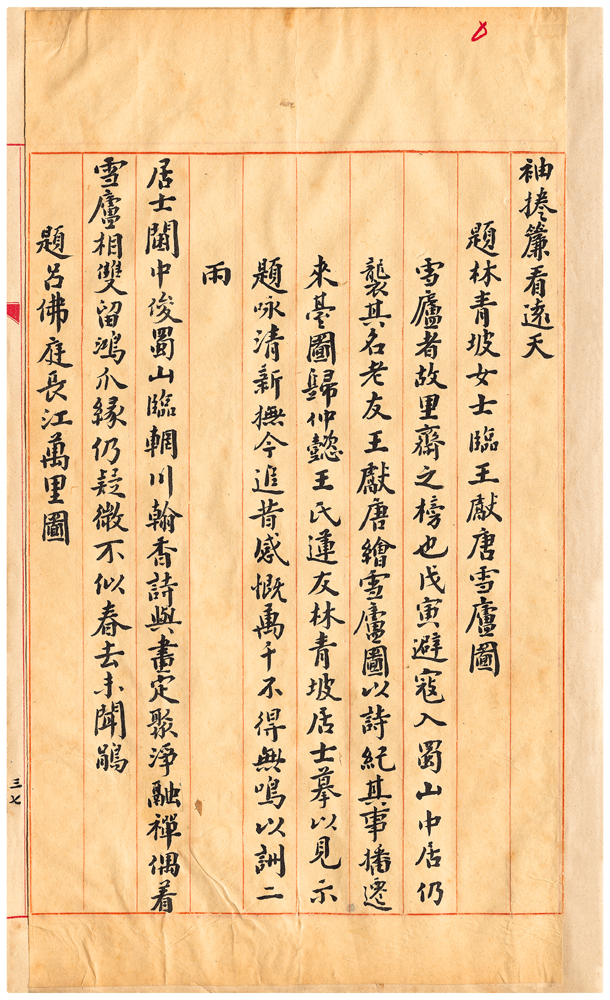 袖捲簾看遠天
題林青坡女士臨王獻唐雪廬圖
雪廬者故里齋之榜也戊寅避寇入蜀山中居仍
襲其名老友王獻唐繪雪廬圖以詩紀其事播遷
來臺圖歸仲懿王氏蓮友林青坡居士摹以見示
題咏清新撫今追昔感慨萬千不得無鳴以詶二
雨
居士閩中俊蜀山臨輞川翰香詩與畫定聚淨融禪偶着
雪廬相雙留鴻爪緣仍疑微不似春去未聞鵑
題呂佛庭長江萬里圖
三七